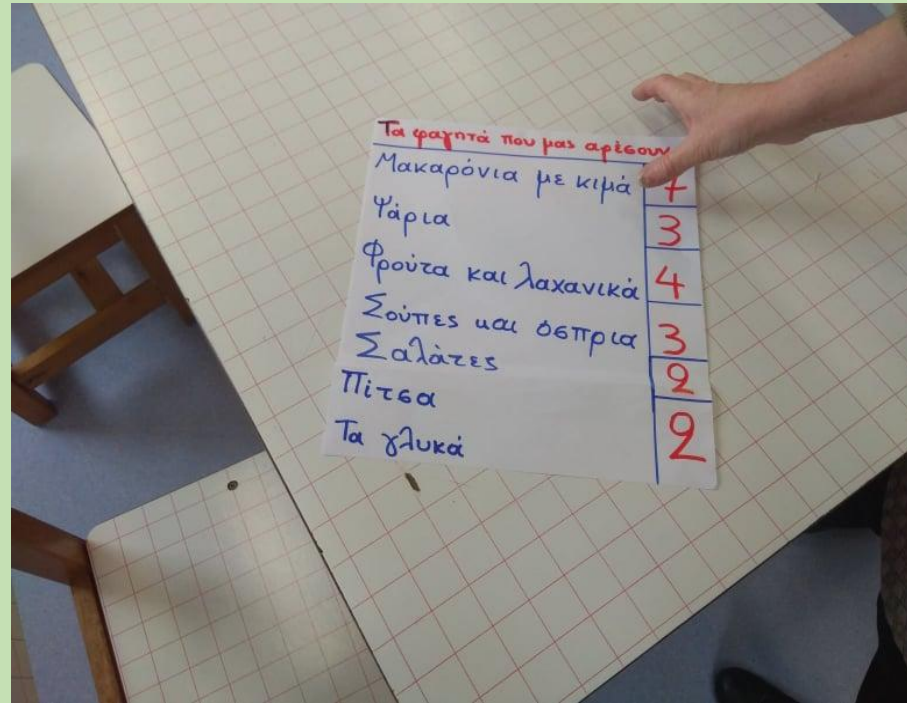 Τα φαγητά που μας αρέσουν
Μακαρόνια με κιμά 7
Ψάρια 3
Φρούτα και λαχανικά 4
Σούπες και όσπρια 3
Σαλάτες 2
Πίτσα
Τα γλυκά 2